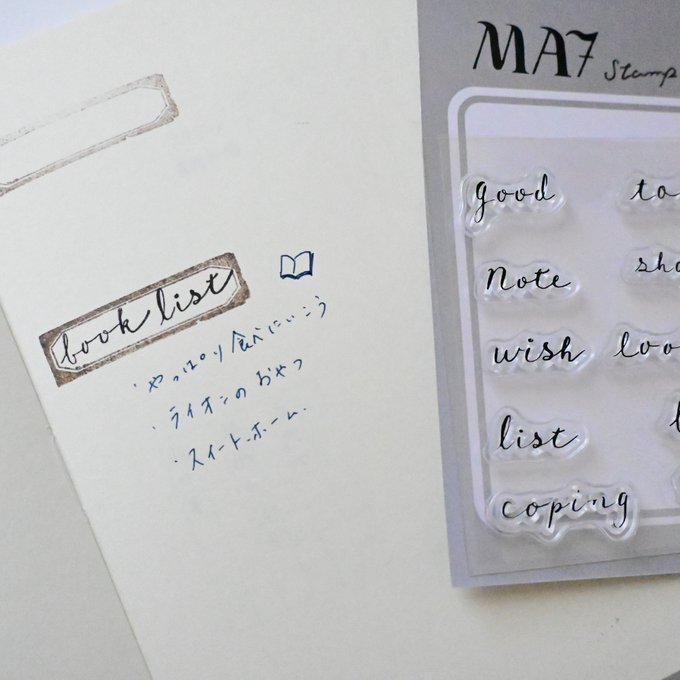 book list
・やっぱり食べにいこう
・ライオンのおやつ
・スイート・ホーム
MA7 Stamp
good
to
Note
sho
wish
loo
list
coping